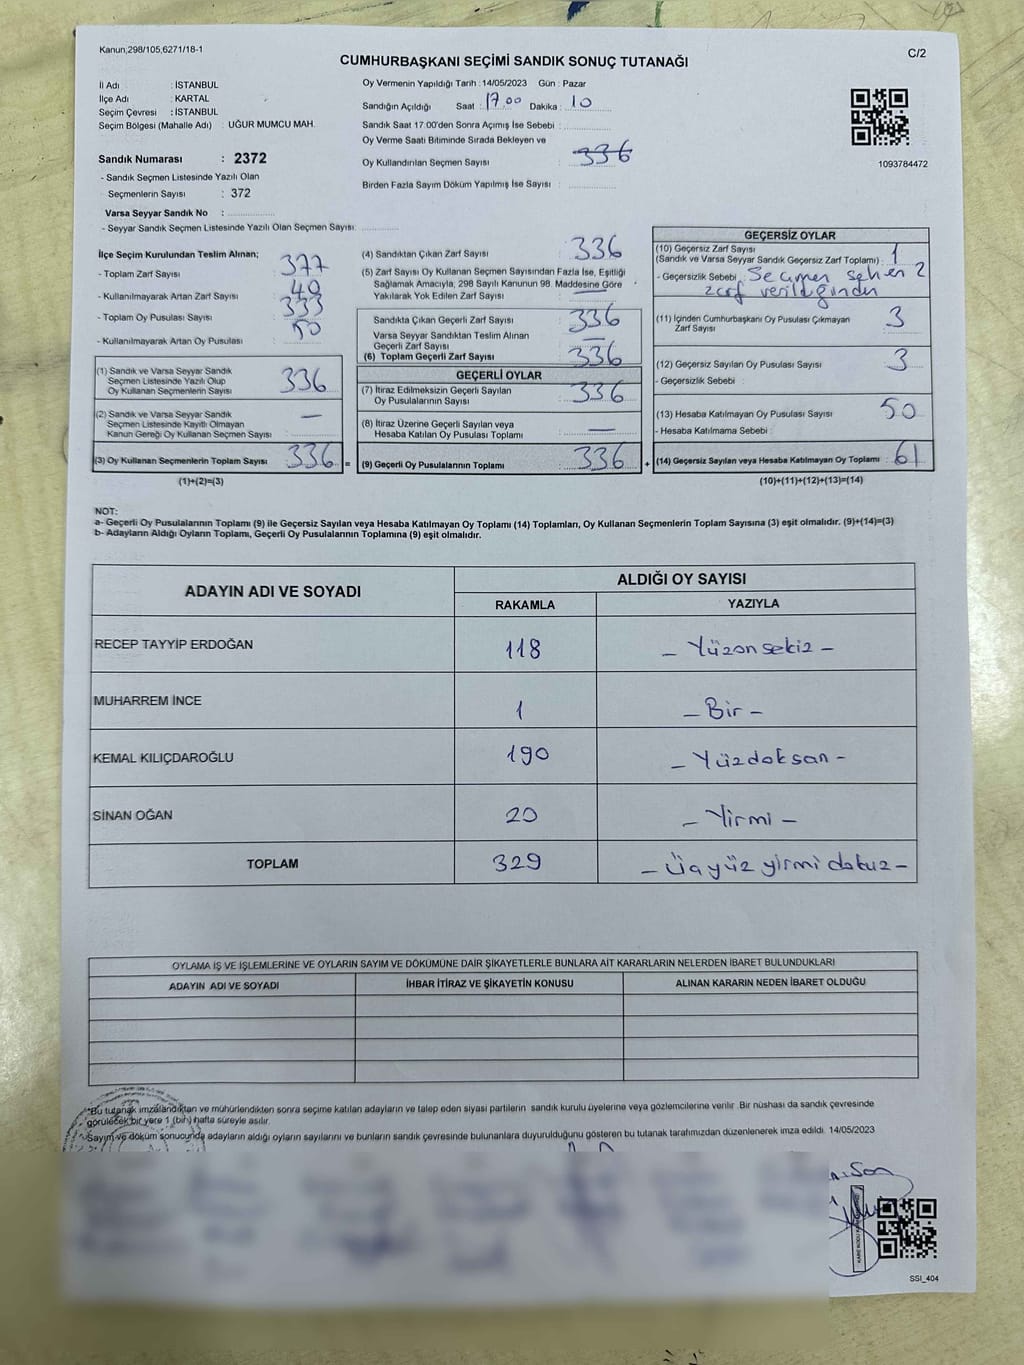 Kanun;298/105,6271/18-1
C/2
CUMHURBAŞKANI SEÇİMİ SANDIK SONUÇ TUTANAĞI
İl Adı : İSTANBUL
İlçe Adı : KARTAL
Seçim Çevresi : İSTANBUL
Seçim Bölgesi (Mahalle Adı) : UĞUR MUMCU MAH.
Sandık Numarası : 2372
- Sandık Seçmen Listesinde Yazılı Olan
Seçmenlerin Sayısı : 372
Varsa Seyyar Sandık No :
- Seyyar Sandık Seçmen Listesinde Yazılı Olan Seçmen Sayısı:
Oy Vermenin Yapıldığı Tarih : 14/05/2023 Gün : Pazar
Sandığın Açıldığı Saat : 17.00 Dakika : 10
Sandık Saat 17:00'den Sonra Açımış İse Sebebi :
Oy Verme Saati Bitiminde Sırada Bekleyen ve
Oy Kullandırılan Seçmen Sayısı : 336
Birden Fazla Sayım Döküm Yapılmış İse Sayısı :
1093784472
İlçe Seçim Kurulundan Teslim Alınan;
- Toplam Zarf Sayısı : 377
- Kullanılmayarak Artan Zarf Sayısı : 40
- Toplam Oy Pusulası Sayısı :
- Kullanılmayarak Artan Oy Pusulası : 50
(1) Sandık ve Varsa Seyyar Sandık
Seçmen Listesinde Yazılı Olup
Oy Kullanan Seçmenlerin Sayısı : 336
(2) Sandık ve Varsa Seyyar Sandık
Seçmen Listesinde Kayıtlı Olmayan
Kanun Gereği Oy Kullanan Seçmen Sayısı : —
(3) Oy Kullanan Seçmenlerin Toplam Sayısı : 336 =
(1)+(2)=(3)
(4) Sandıktan Çıkan Zarf Sayısı : 336
(5) Zarf Sayısı Oy Kullanan Seçmen Sayısından Fazla İse, Eşitliği
Sağlamak Amacıyla, 298 Sayılı Kanunun 98. Maddesine Göre
Yakılarak Yok Edilen Zarf Sayısı : —
Sandıkta Çıkan Geçerli Zarf Sayısı : 336
Varsa Seyyar Sandıktan Teslim Alınan
Geçerli Zarf Sayısı : —
(6) Toplam Geçerli Zarf Sayısı : 336
GEÇERLİ OYLAR
(7) İtiraz Edilmeksizin Geçerli Sayılan
Oy Pusulalarının Sayısı : 336
(8) İtiraz Üzerine Geçerli Sayılan veya
Hesaba Katılan Oy Pusulası Toplamı : —
(9) Geçerli Oy Pusulalarının Toplamı : 336 +
GEÇERSİZ OYLAR
(10) Geçersiz Zarf Sayısı
(Sandık ve Varsa Seyyar Sandık Geçersiz Zarf Toplamı) : 1
- Geçersizlik Sebebi : Seçmen sehen 2
zarf verildiğinden
(11) İçinden Cumhurbaşkanı Oy Pusulası Çıkmayan
Zarf Sayısı : 3
(12) Geçersiz Sayılan Oy Pusulası Sayısı : 3
- Geçersizlik Sebebi :
(13) Hesaba Katılmayan Oy Pusulası Sayısı : 50
- Hesaba Katılmama Sebebi :
(14) Geçersiz Sayılan veya Hesaba Katılmayan Oy Toplamı : 61
(10)+(11)+(12)+(13)=(14)
NOT:
a- Geçerli Oy Pusulalarının Toplamı (9) ile Geçersiz Sayılan veya Hesaba Katılmayan Oy Toplamı (14) Toplamları, Oy Kullanan Seçmenlerin Toplam Sayısına (3) eşit olmalıdır. (9)+(14)=(3)
b- Adayların Aldığı Oyların Toplamı, Geçerli Oy Pusulalarının Toplamına (9) eşit olmalıdır.
ADAYIN ADI VE SOYADI
ALDIĞI OY SAYISI
RAKAMLA YAZIYLA
RECEP TAYYİP ERDOĞAN 118 – Yüzonsekiz –
MUHARREM İNCE 1 – Bir –
KEMAL KILIÇDAROĞLU 190 – Yüzdoksan –
SİNAN OĞAN 20 – Yirmi –
TOPLAM 329 – Üçyüz yirmi dokuz –
OYLAMA İŞ VE İŞLEMLERİNE VE OYLARIN SAYIM VE DÖKÜMÜNE DAİR ŞİKAYETLERLE BUNLARA AİT KARARLARIN NELERDEN İBARET BULUNDUKLARI
ADAYIN ADI VE SOYADI İHBAR İTİRAZ VE ŞİKAYETİN KONUSU ALINAN KARARIN NEDEN İBARET OLDUĞU
*Bu tutanak imzalandıktan ve mühürlendikten sonra seçime katılan adayların ve talep eden siyasi partilerin sandık kurulu üyelerine veya gözlemcilerine verilir. Bir nüshası da sandık çevresinde
görülecek bir yere 1 (bir) hafta süreyle asılır.
*Sayım ve döküm sonucunda adayların aldığı oyların sayılarını ve bunların sandık çevresinde bulunanlara duyurulduğunu gösteren bu tutanak tarafımızdan düzenlenerek imza edildi. 14/05/2023
SSI_404